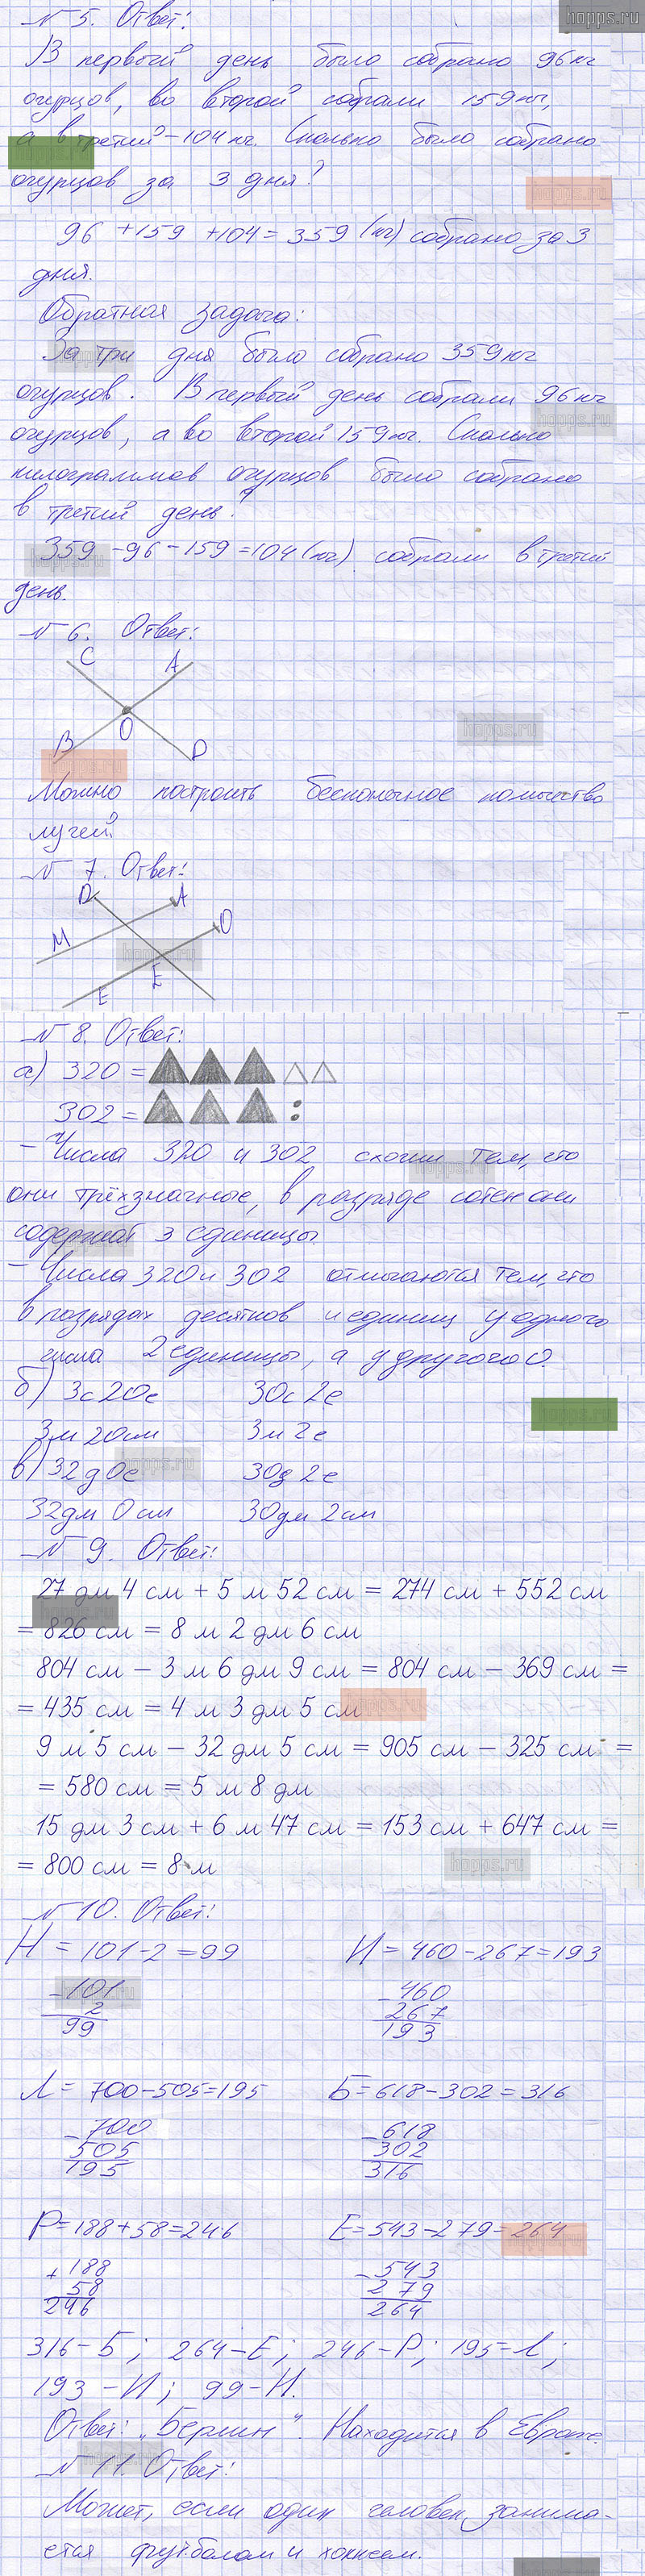 № 5. Ответ:
hopps.ru
В первый день было собрано 96 кг
огурцов, во второй собрали 159 кг,
а в третий – 104 кг. Сколько было собрано
огурцов за 3 дня?
96 + 159 + 104 = 359 (кг) собрано за 3
дня.
Обратная задача:
За три дня было собрано 359 кг
огурцов. В первый день собрали 96 кг
огурцов, а во второй 159 кг. Сколько
килограммов огурцов было собрано
в третий день?
359 – 96 – 159 = 104 (кг) собрали в третий
день.
№ 6. Ответ:
C A
O
B D
hopps.ru
Можно построить бесконечное количество
лучей.
№ 7. Ответ:
D A O
M
hopps.ru
E E
№ 8. Ответ:
а) 320 =
302 =
– Числа 320 и 302 схожи тем, что
они трёхзначные, в разряде сотен они
содержат 3 единицы.
– Числа 320 и 302 отличаются тем, что
в разрядах десятков и единиц у одного
числа 2 единицы, а у другого 0.
б) 3с 20е 30с 2е
3м 20см 3м 2е
в) 32д 0е 30д 2е
32дм 0см 30дм 2см
№ 9. Ответ:
27 дм 4 см + 5 м 52 см = 274 см + 552 см
= 826 см = 8 м 2 дм 6 см
804 см – 3 м 6 дм 9 см = 804 см – 369 см =
= 435 см = 4 м 3 дм 5 см
9 м 5 см – 32 дм 5 см = 905 см – 325 см =
= 580 см = 5 м 8 дм
15 дм 3 см + 6 м 47 см = 153 см + 647 см =
= 800 см = 8 м
hopps.ru
№ 10. Ответ:
Н = 101 – 2 = 99 И = 460 – 267 = 193
– 101 – 460
2 267
99 193
Л = 700 – 505 = 195 Б = 618 – 302 = 316
– 700 – 618
505 302
195 316
Р = 188 + 58 = 246 Е = 543 – 279 = 264
+ 188 – 543
58 279
246 264
316 – Б; 264 – Е; 246 – Р; 195 – Л;
193 – И; 99 – Н.
Ответ: „Берлин“. Находится в Европе.
№ 11. Ответ:
Может, если один человек занима-
ется футболом и хоккеем.